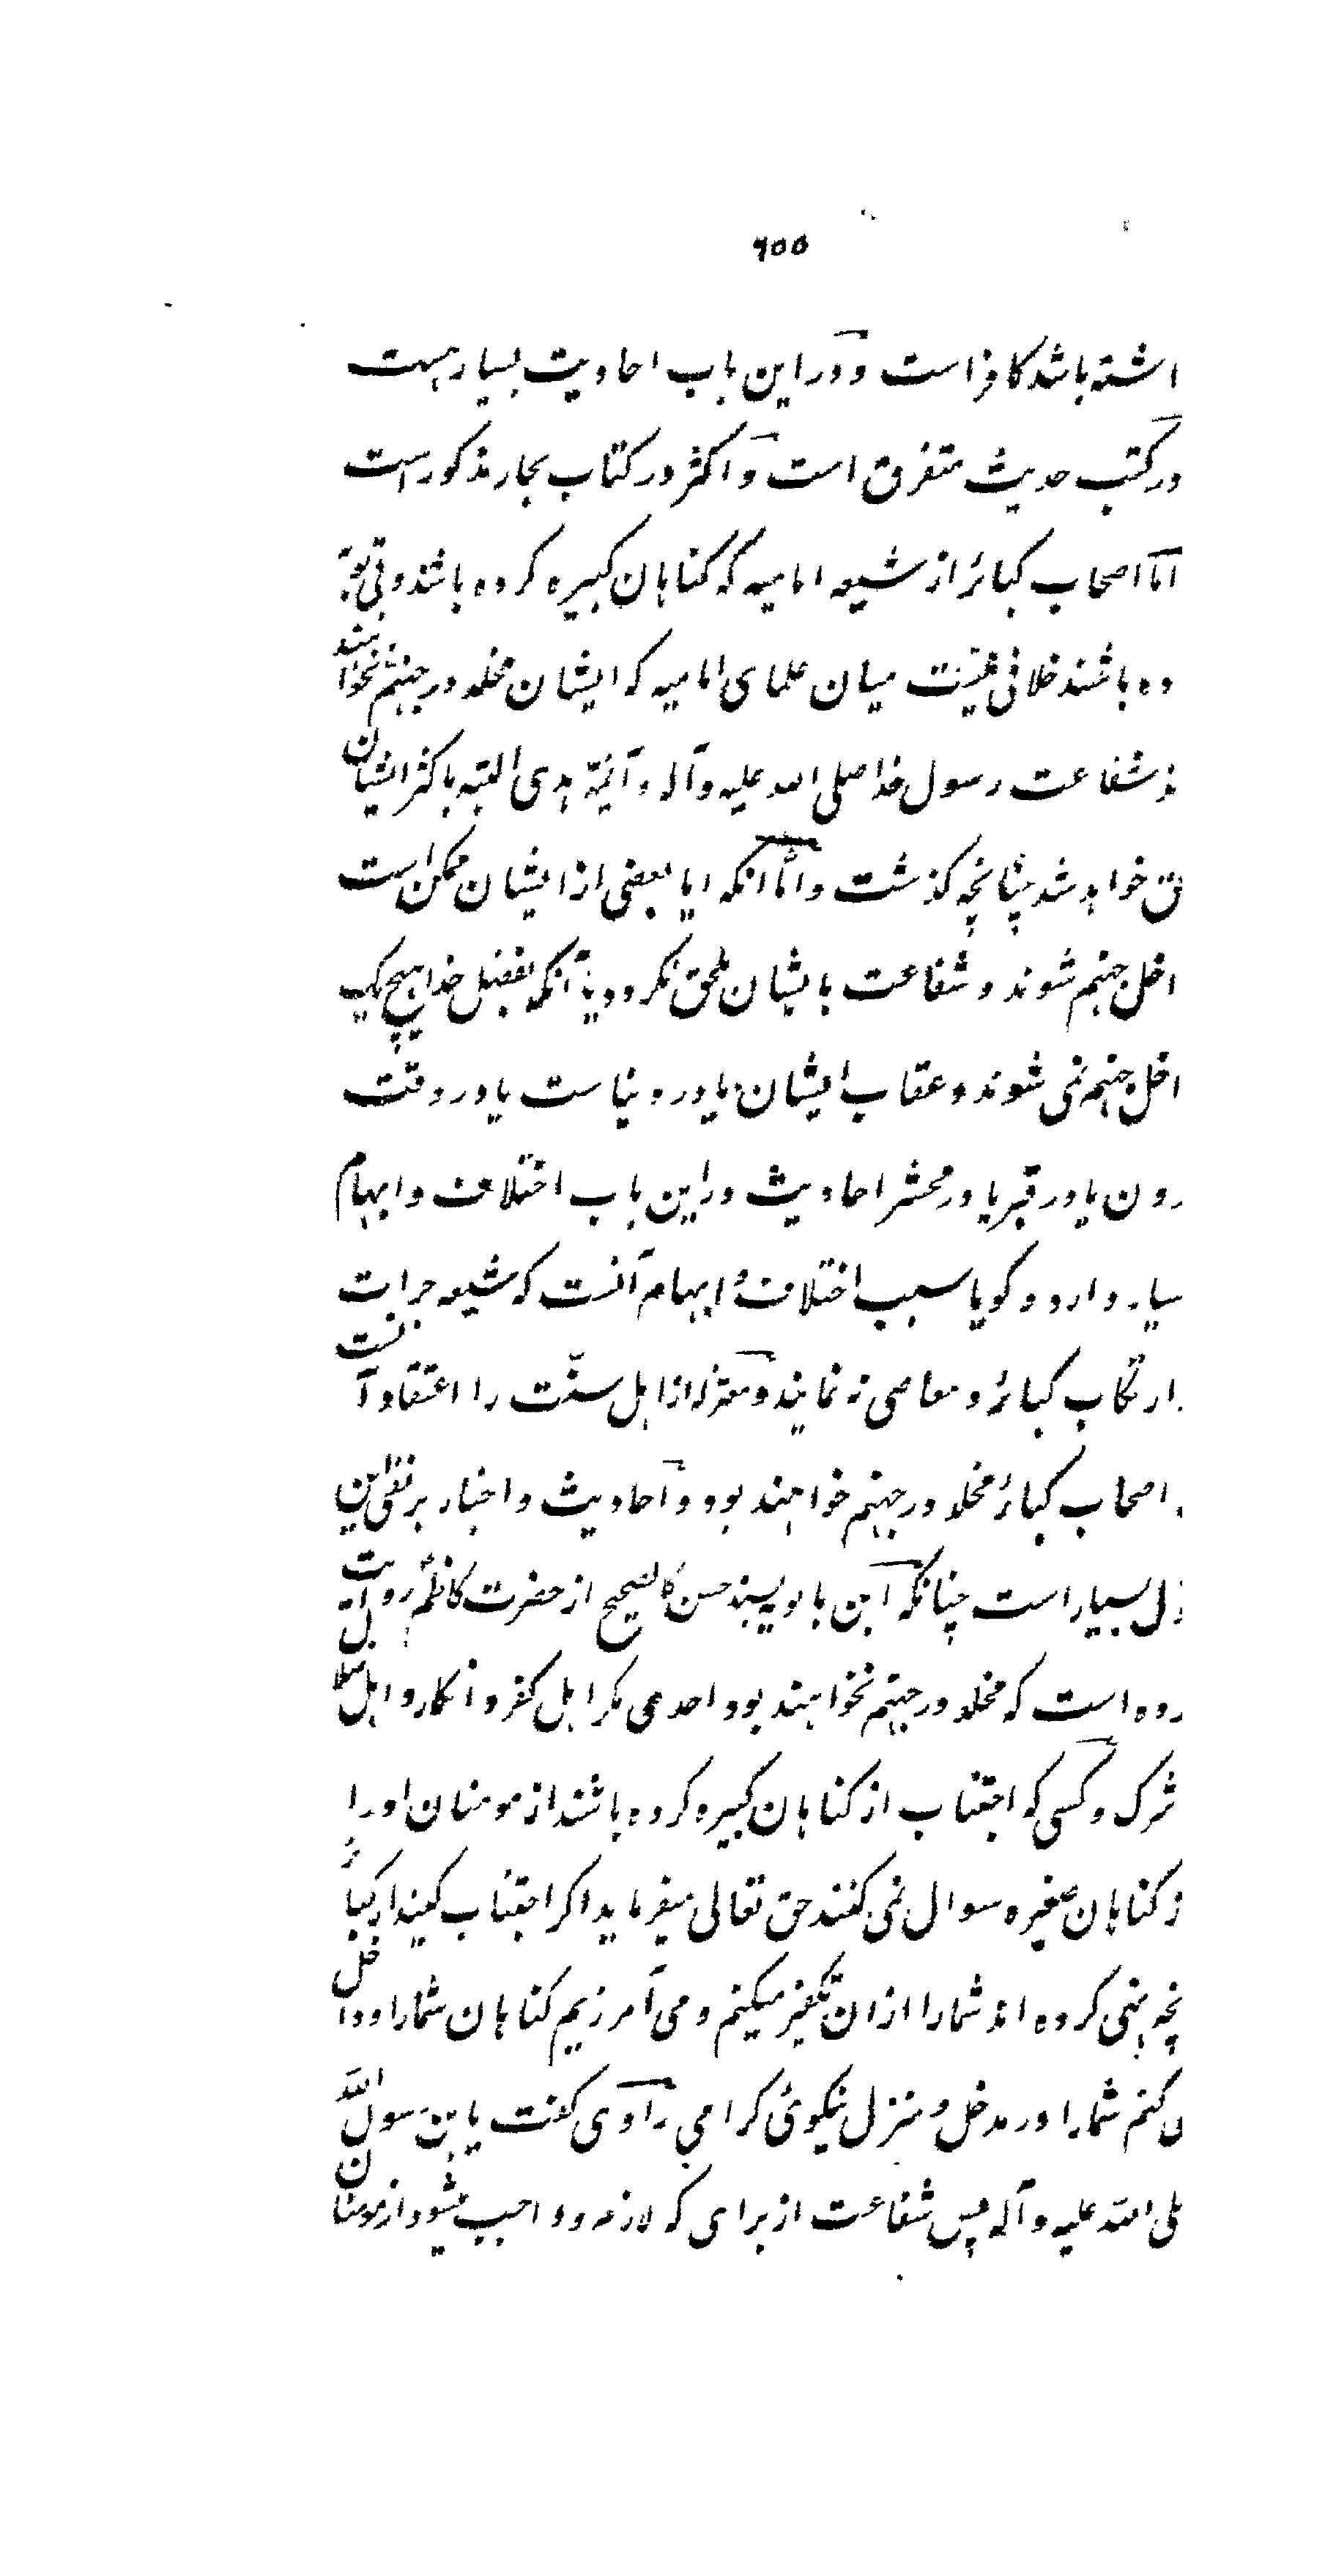 ٦٥٥
اشته باشد کافر است و در این باب احادیث بسیار هست
در کتب حدیث متفرق است و اکثر در کتاب بحار مذکور است
اما اصحاب کبائر از شیعه امامیه که کناهان کبیره کرده باشند و بی توبه
ده باشند خلافی نیست میان علمای امامیه که ایشان مخلد در جهنم نخواهند
شفاعت رسول خدا صلی الله علیه وآله و آئمّه هدی البته باکثر ایشان
ق خواهد شد چنانچه کذشت و امّا انکه ایا بعضی از ایشان ممکن است
اخل جهنم شوند و شفاعت بایشان ملحق نکردد یا آنکه بفضل خدا هیچ یک
اخل جهنم نمی شوند و عقاب ایشان یا در دنیاست یا در وقت
ردن یا در قبر یا در محشر احادیث در این باب اختلاف و ابهام
سیار دارد و کویا سبب اختلاف و ابهام آنست که شیعه جرات
ارتکاب کبائر و معاصی نه نمایند و معتزله از اهل سنّت را اعتقاد آنست
اصحاب کبائر مخلد در جهنم خواهند بود و احادیث و اخبار بر نفی این
ول بسیار است چنانکه ابن بابویه بسند حسن کالصحیح از حضرت کاظم روایت
رده است که مخلد در جهنم نخواهند بود احدی مکر اهل کفر و انکار و اهل ضلال
شرک و کسی که اجتناب از کناهان کبیره کرده باشند از مومنان او را
ز کناهان صغیره سوال نمی کنند حق تعالی میفرماید اکر اجتناب کنید از کبائر
نچه نهی کرده اند شما را ازان تکفیر میکنم و می آمرزیم کناهان شما را و داخل
ی کنم شما را در مدخل و منزل نیکوئی کرامی راوی کفت یا بن رسول الله
لی الله علیه و آله پس شفاعت از برای که لازم و واجب میشود از مومنان